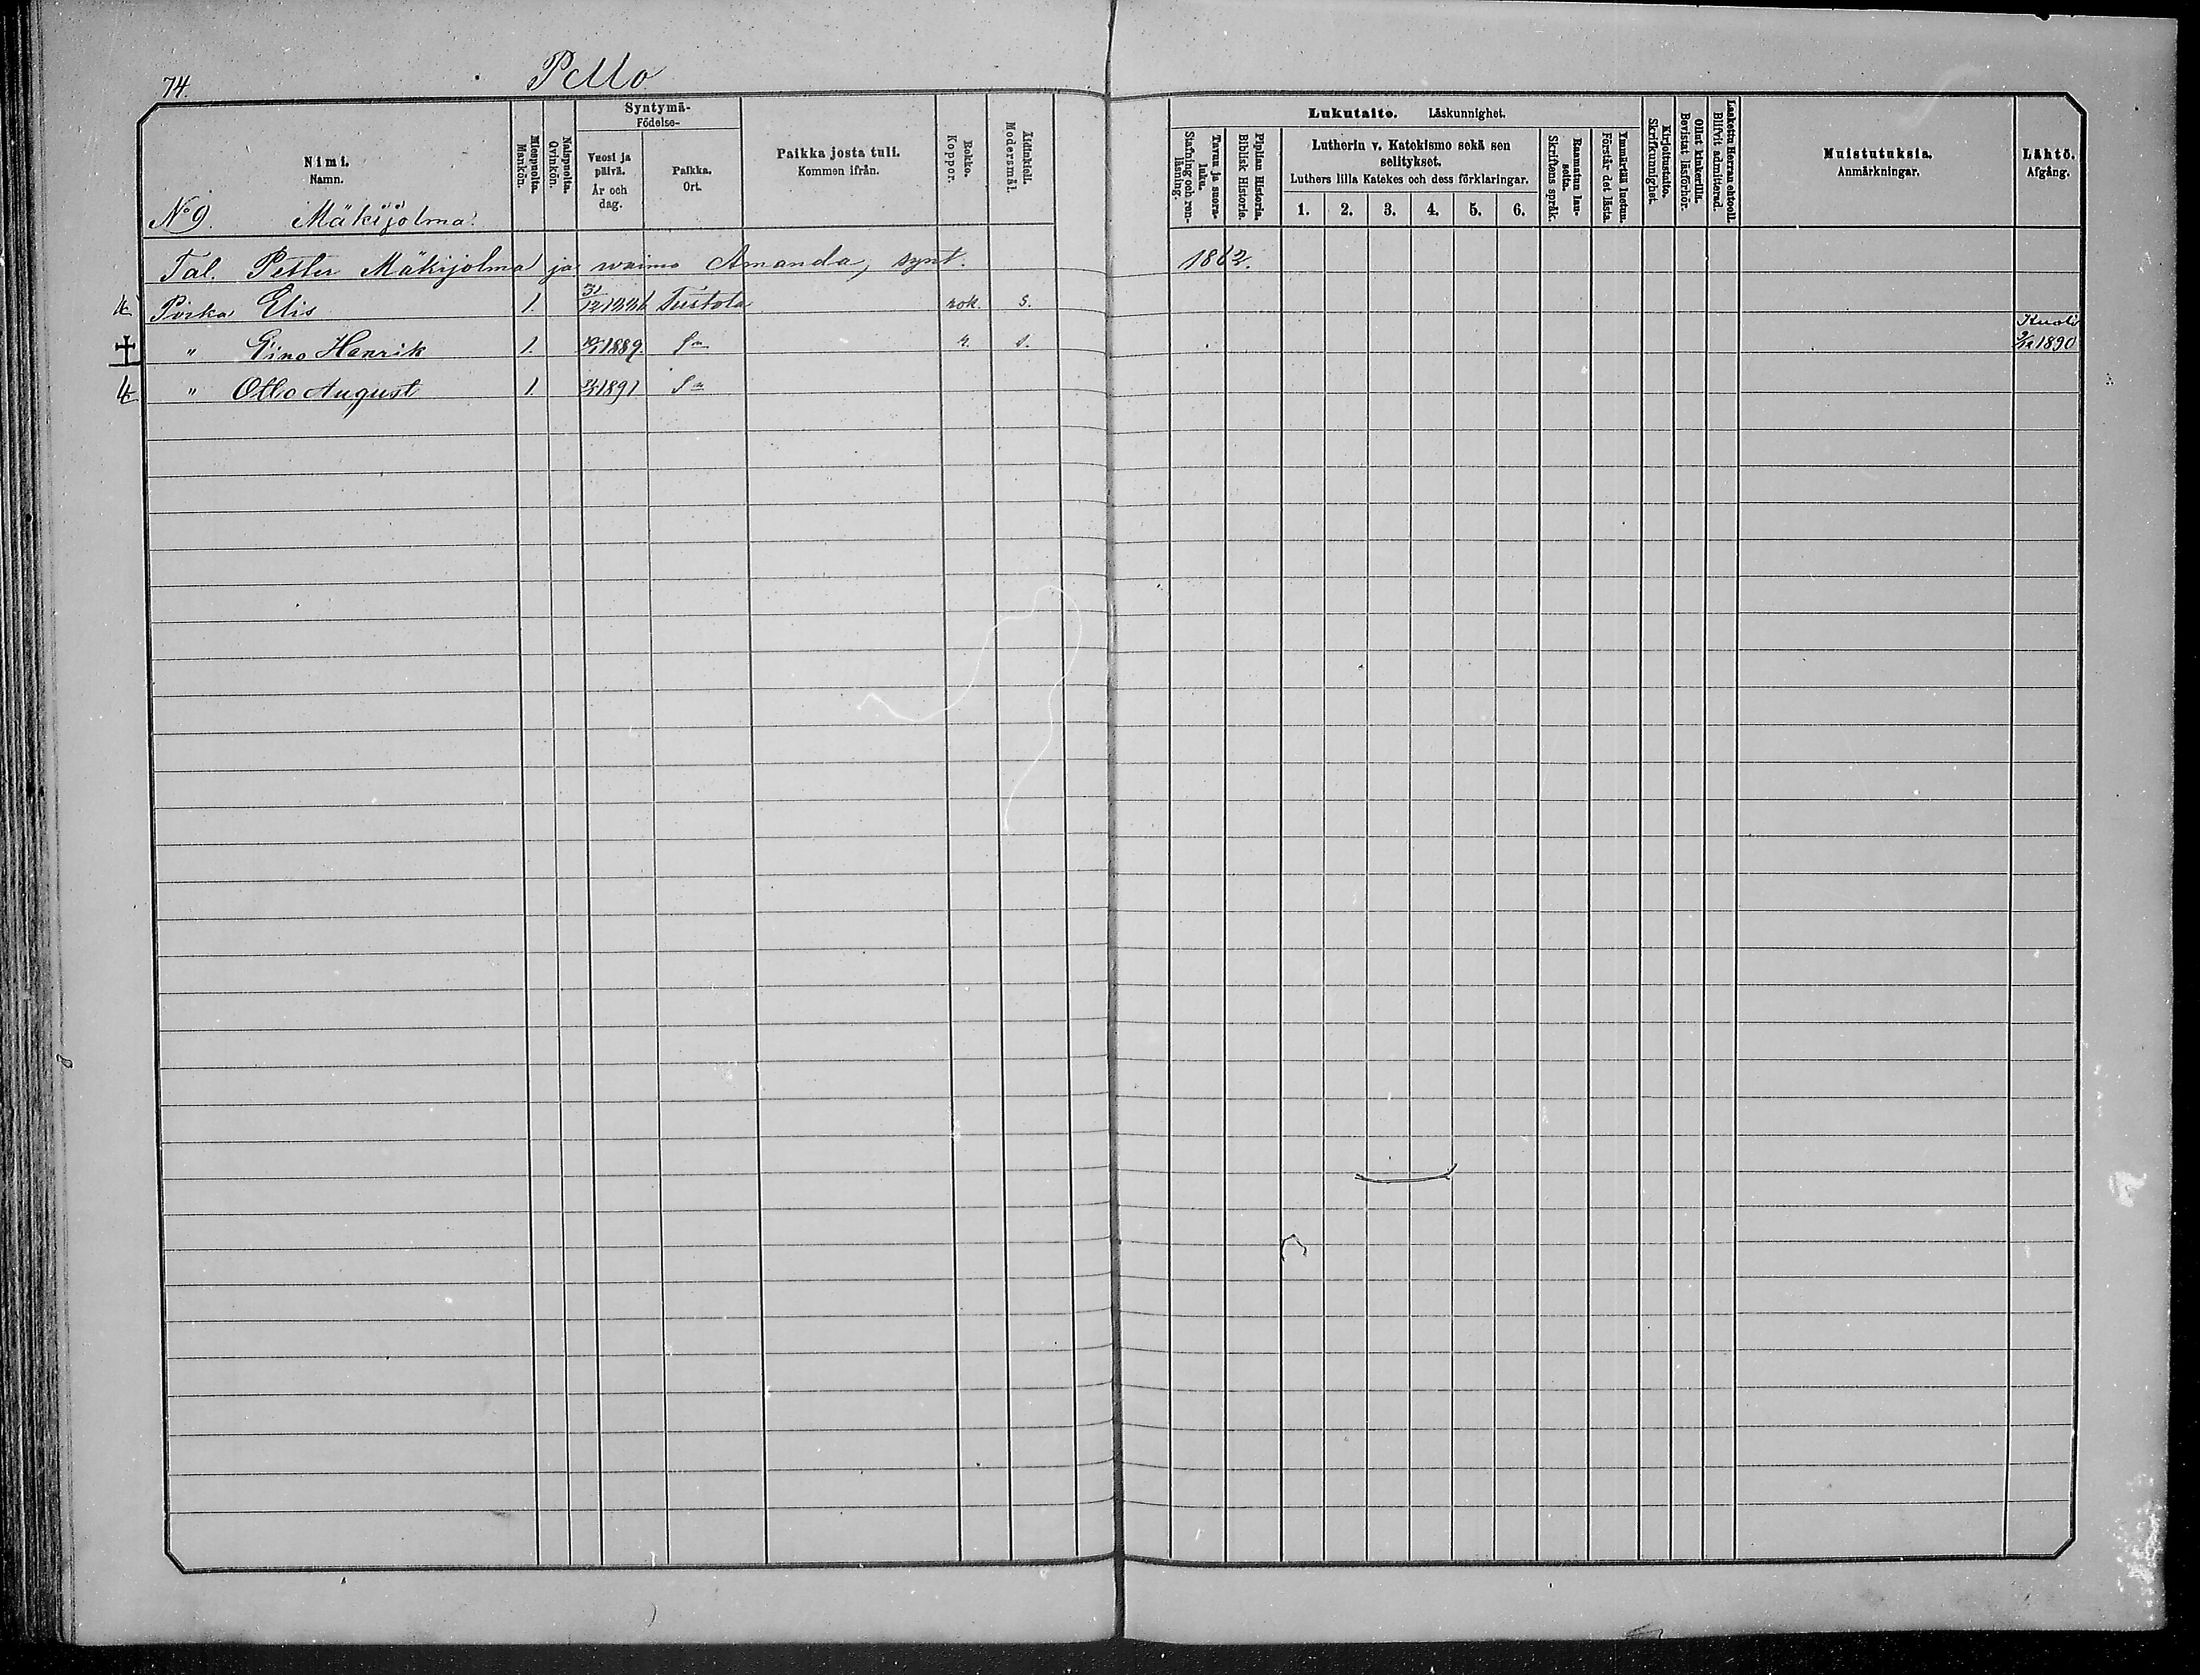 74. Pello
Syntymä-
Födelse-
Nimi.
Namn.
Miespuolta.
Mankön.
Naispuolta.
Qvinkön.
Vuosi ja päivä.
År och dag.
Paikka.
Ort.
Paikka josta tuli.
Kommen ifrån.
Rokko.
Koppor.
Äidinkieli.
Modersmål.
Tavuu ja suora-luku.
Stafning och ren-läsning.
Piplian Historia.
Biblisk Historie.
Lukutaito. Läskunnighet.
Lutherin v. Katekismo sekä sen
selitykset.
Luthers lilla Katekes och dess förklaringar.
1. 2. 3. 4. 5. 6.
Raamatun lau-seita.
Skriftens språk.
Ymmärtää luetun.
Förstår det lästa.
Kirjoitustaito.
Skrifkunnighet.
Ollut kinkerillä.
Bevistat läsförhör.
Laskettu Herran ehtooll.
Blifvit admitterad.
Muistutuksia.
Anmärkningar.
Lähtö.
Afgång.
No 9. Mäkijolma.
Tal. Petter Mäkijolma ja waimo Amanda, synt. 1862.
Poika Elis 1. 31/12 rok. s.
" Eino Henrik 1. 1889. r. s. Kuoli 1890
" Otto August 1. 1891